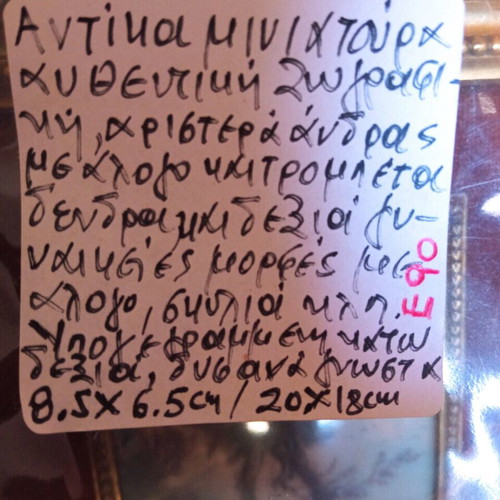 Αντίκα μινιατούρα
αυθεντική ζωγραφι-
κή, αριστερά άνδρας
με άλογο και τρομπέτα
δένδρα και δεξιά γυ-
ναικείες μορφές με
άλογο, σκυλιά κλπ. Ε90
Υπογεγραμμένη κάτω
δεξιά, δυσανάγνωστα
8.5X6.5cm / 20X18cm